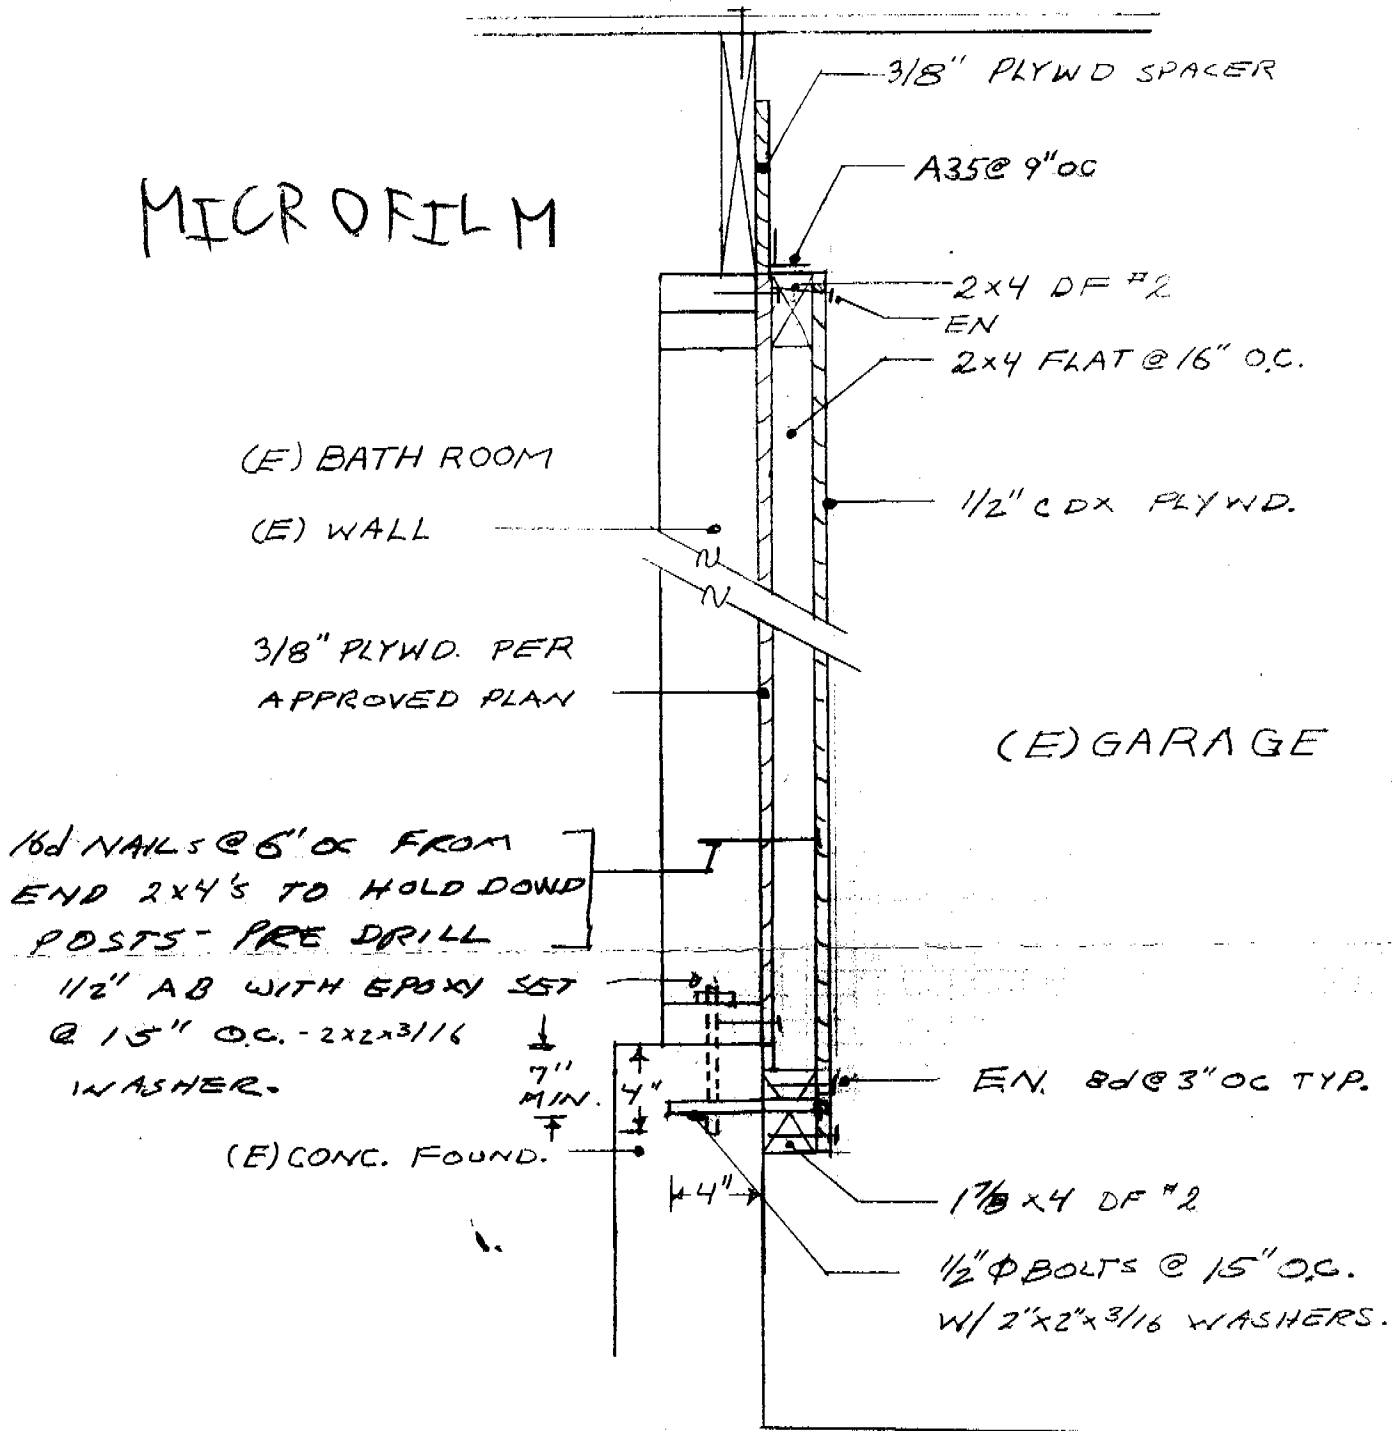 3/8" PLYWD SPACER
A35@ 9"OC
MICROFILM
2x4 DF #2
EN
2x4 FLAT @ 16" O.C.
(E) BATH ROOM
1/2" CDX PLYWD.
(E) WALL
3/8" PLYWD. PER
APPROVED PLAN
(E) GARAGE
16d NAILS @ 6" OC FROM
END 2x4's TO HOLD DOWD
POSTS - PRE DRILL
1/2" AB WITH EPOXY SET
@ 15" O.C. - 2x2x3/16
WASHER.
7"
MIN.
4"
EN. 8d@3"OC TYP.
(E) CONC. FOUND.
4"
1 7/8 x4 DF #2
1/2"Φ BOLTS @ 15" O.C.
W/ 2"x2"x3/16 WASHERS.